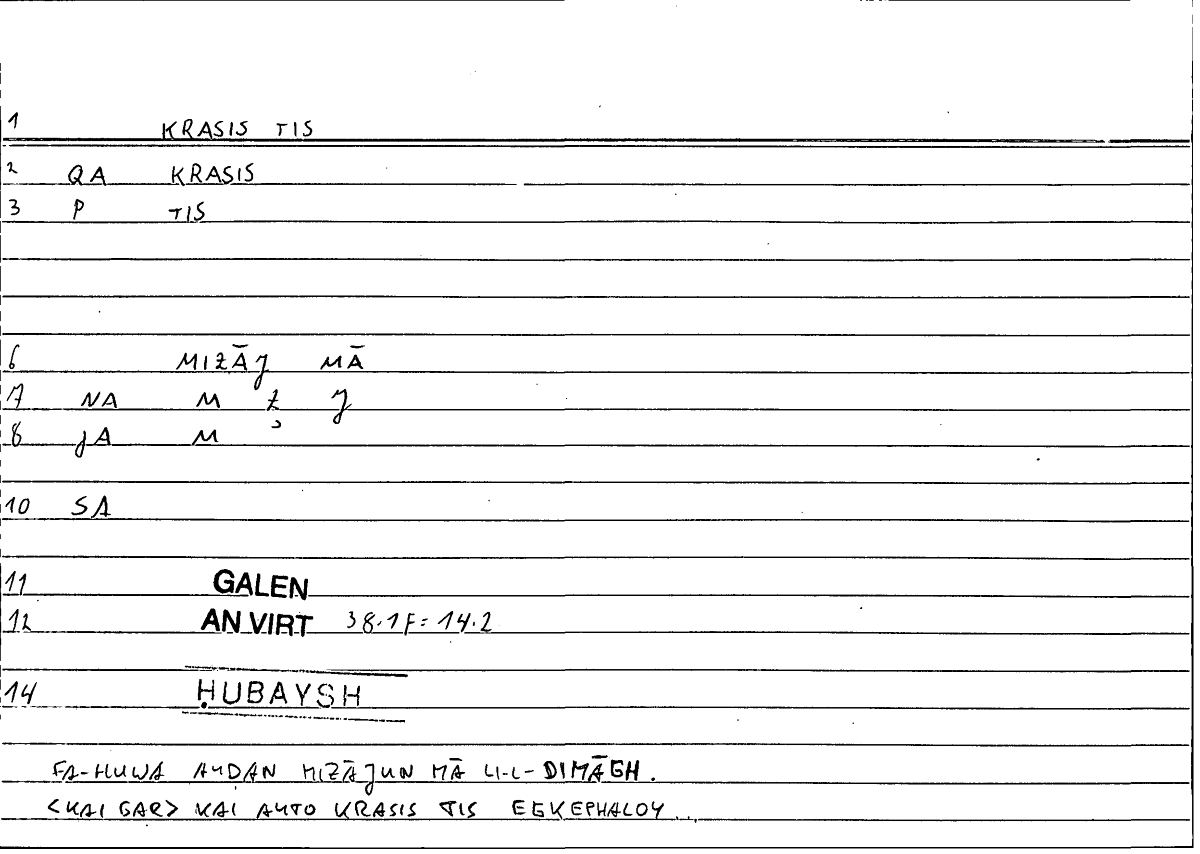 1 KRASIS TIS
2 QA KRASIS
3 P TIS
6 MIZĀJ MĀ
7 NA M Z J
8 JA M
10 SA
11 GALEN
12 AN VIRT 38.1F= 14.2
14 ḤUBAYSH
FA-HUWA AYDAN MIZĀJUN MĀ LI-L-DIMĀGH.
<KAI GAR> KAI AUTO KRASIS TIS EGKEPHALOY...